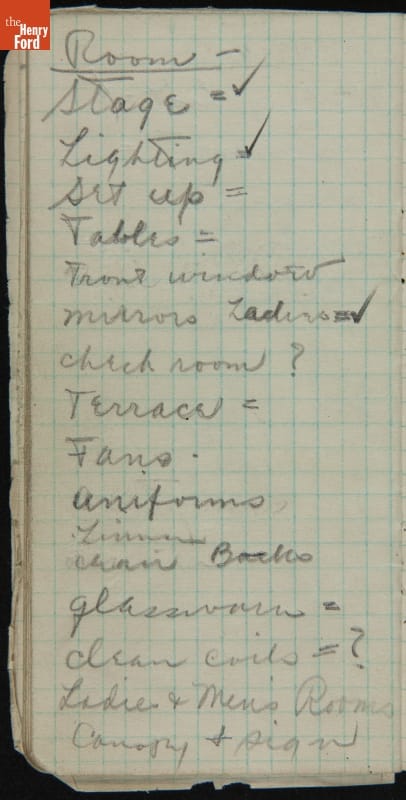 the
Henry
Ford
Room -
Stage = ✓
Lighting = ✓
Set up =
Tables =
Front window
mirrors Ladies = ✓
check room ?
Terrace =
Fans.
uniforms
Linen
chair Backs
glassware =
clean coils = ?
Ladies & Men's Rooms
Canopy & sign